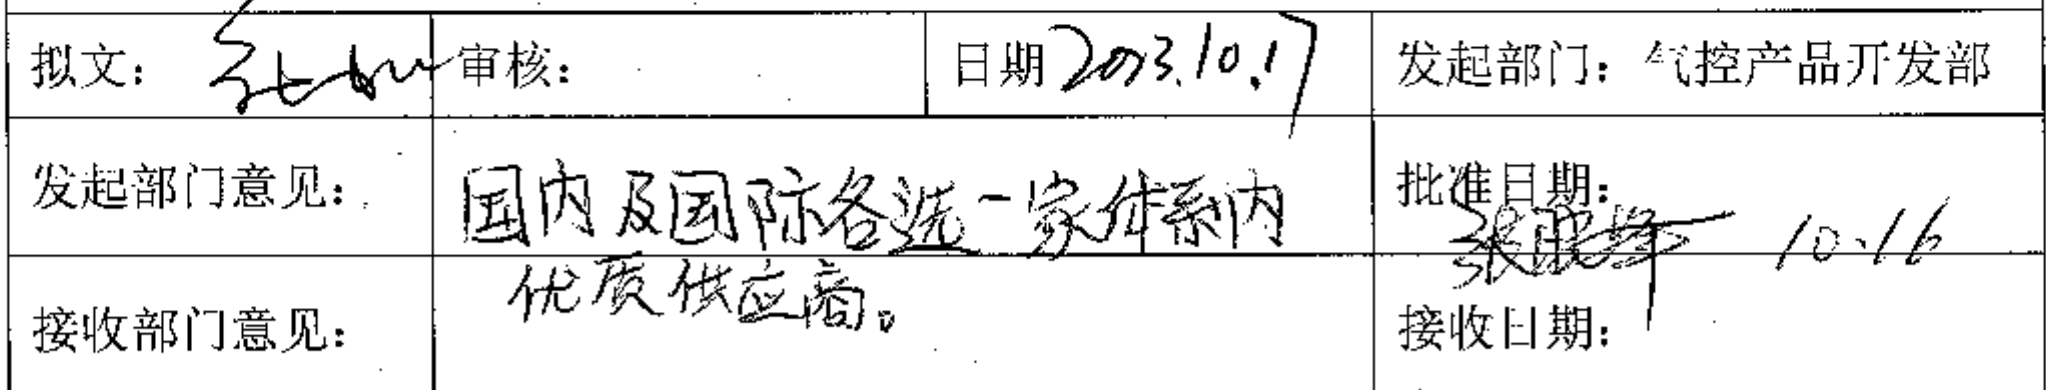 拟文： 审核： 日期 2013.10.17 发起部门：气控产品开发部
发起部门意见： 国内及国际各选一家体系内 批准日期：
10.16
优质供应商。
接收部门意见： 接收日期：